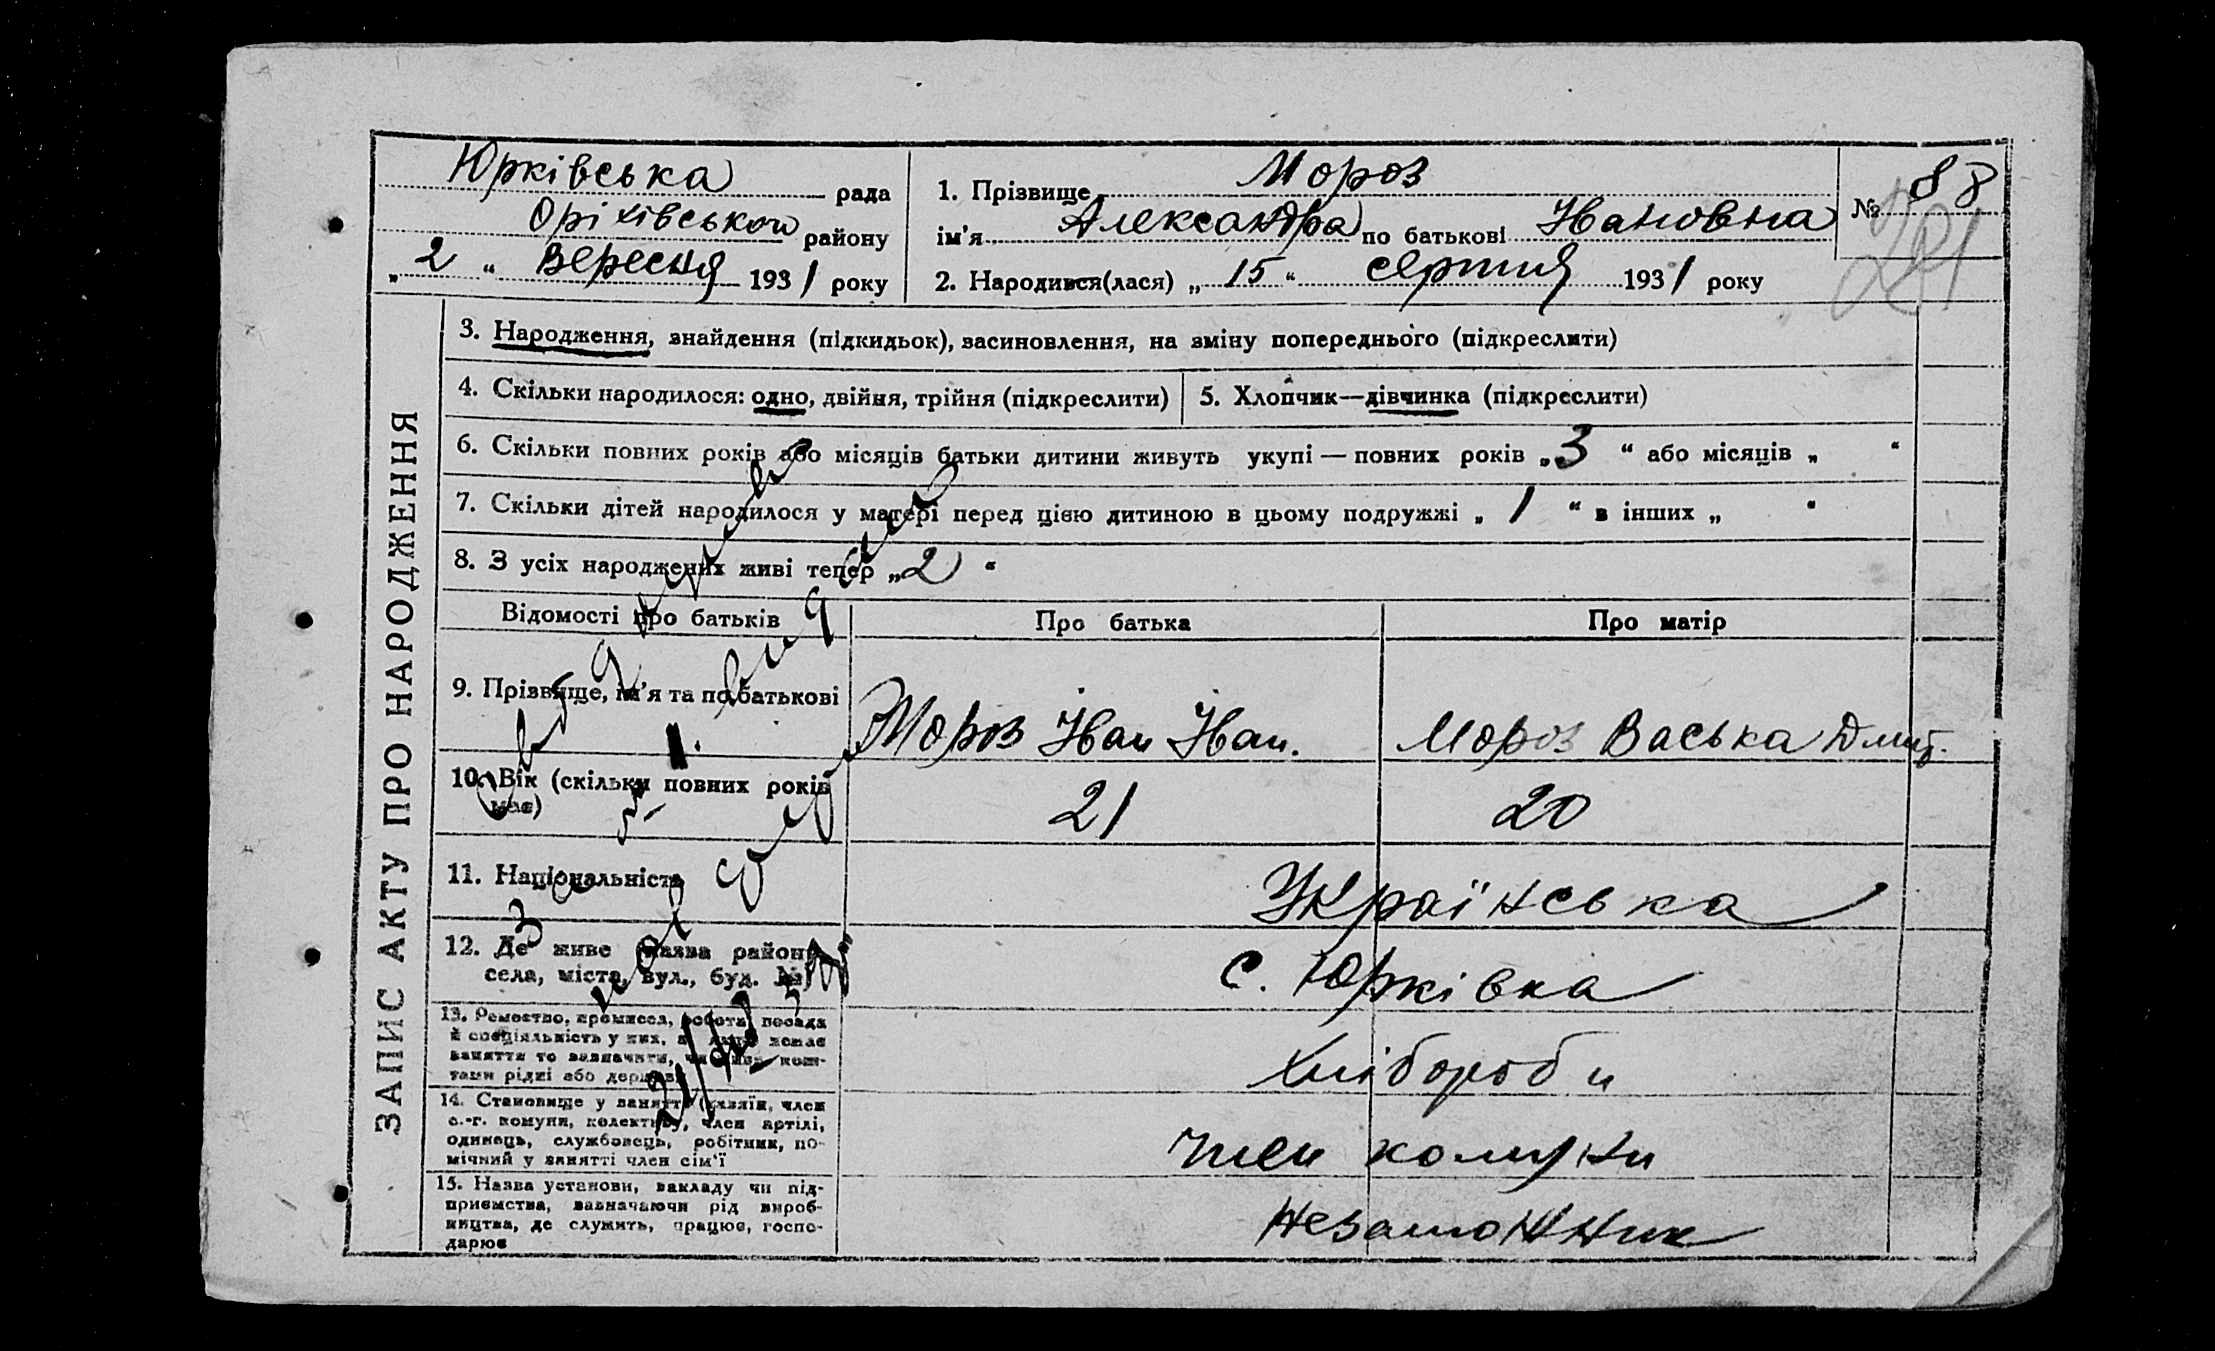 Юрківська рада
Оріхівського району
„ 2 “ Вересня 1931 року
1. Прізвище Мороз
ім’я Александра по батькові Ивановна
№ 88
2. Народився(лася) „ 15 “ серпня 1931 року
ЗАПИС АКТУ ПРО НАРОДЖЕННЯ
3. Народження, знайдення (підкидьок), засиновлення, на зміну попереднього (підкреслити)
4. Скільки народилося: одно, двійня, трійня (підкреслити)
5. Хлопчик—дівчинка (підкреслити)
6. Скільки повних років або місяців батьки дитини живуть укупі — повних років „ 3 “ або місяців „ “
7. Скільки дітей народилося у матері перед цією дитиною в цьому подружжі „ 1 “ в інших „ “
8. З усіх народжених живі тепер „ 2 “
Відомості про батьків
Про батька
Про матір
9. Прізвище, ім’я та по батькові
Мороз Иван Иван.
Мороз Васька Дмит.
10. Вік (скільки повних років має)
21
20
11. Національність
Українська
12. Де живе (назва району,
села, міста, вул., буд. №)
с. Юрківка
13. Ремество, промисел, робота, посада
й спеціяльність у них, а якщо немає
заняття то зазначити, чи живе кош-
тами рідні або держави
Хлібороби
14. Становище у занятті (хазяїн, член
с.-г. комуни, колективу, член артілі,
одинець, службовець, робітник, по-
мічний у занятті член сім’ї
член комуни
15. Назва установи, закладу чи під-
приємства, зазначаючи рід вироб-
ництва, де служить, працює, госпо-
дарює
Незаможник